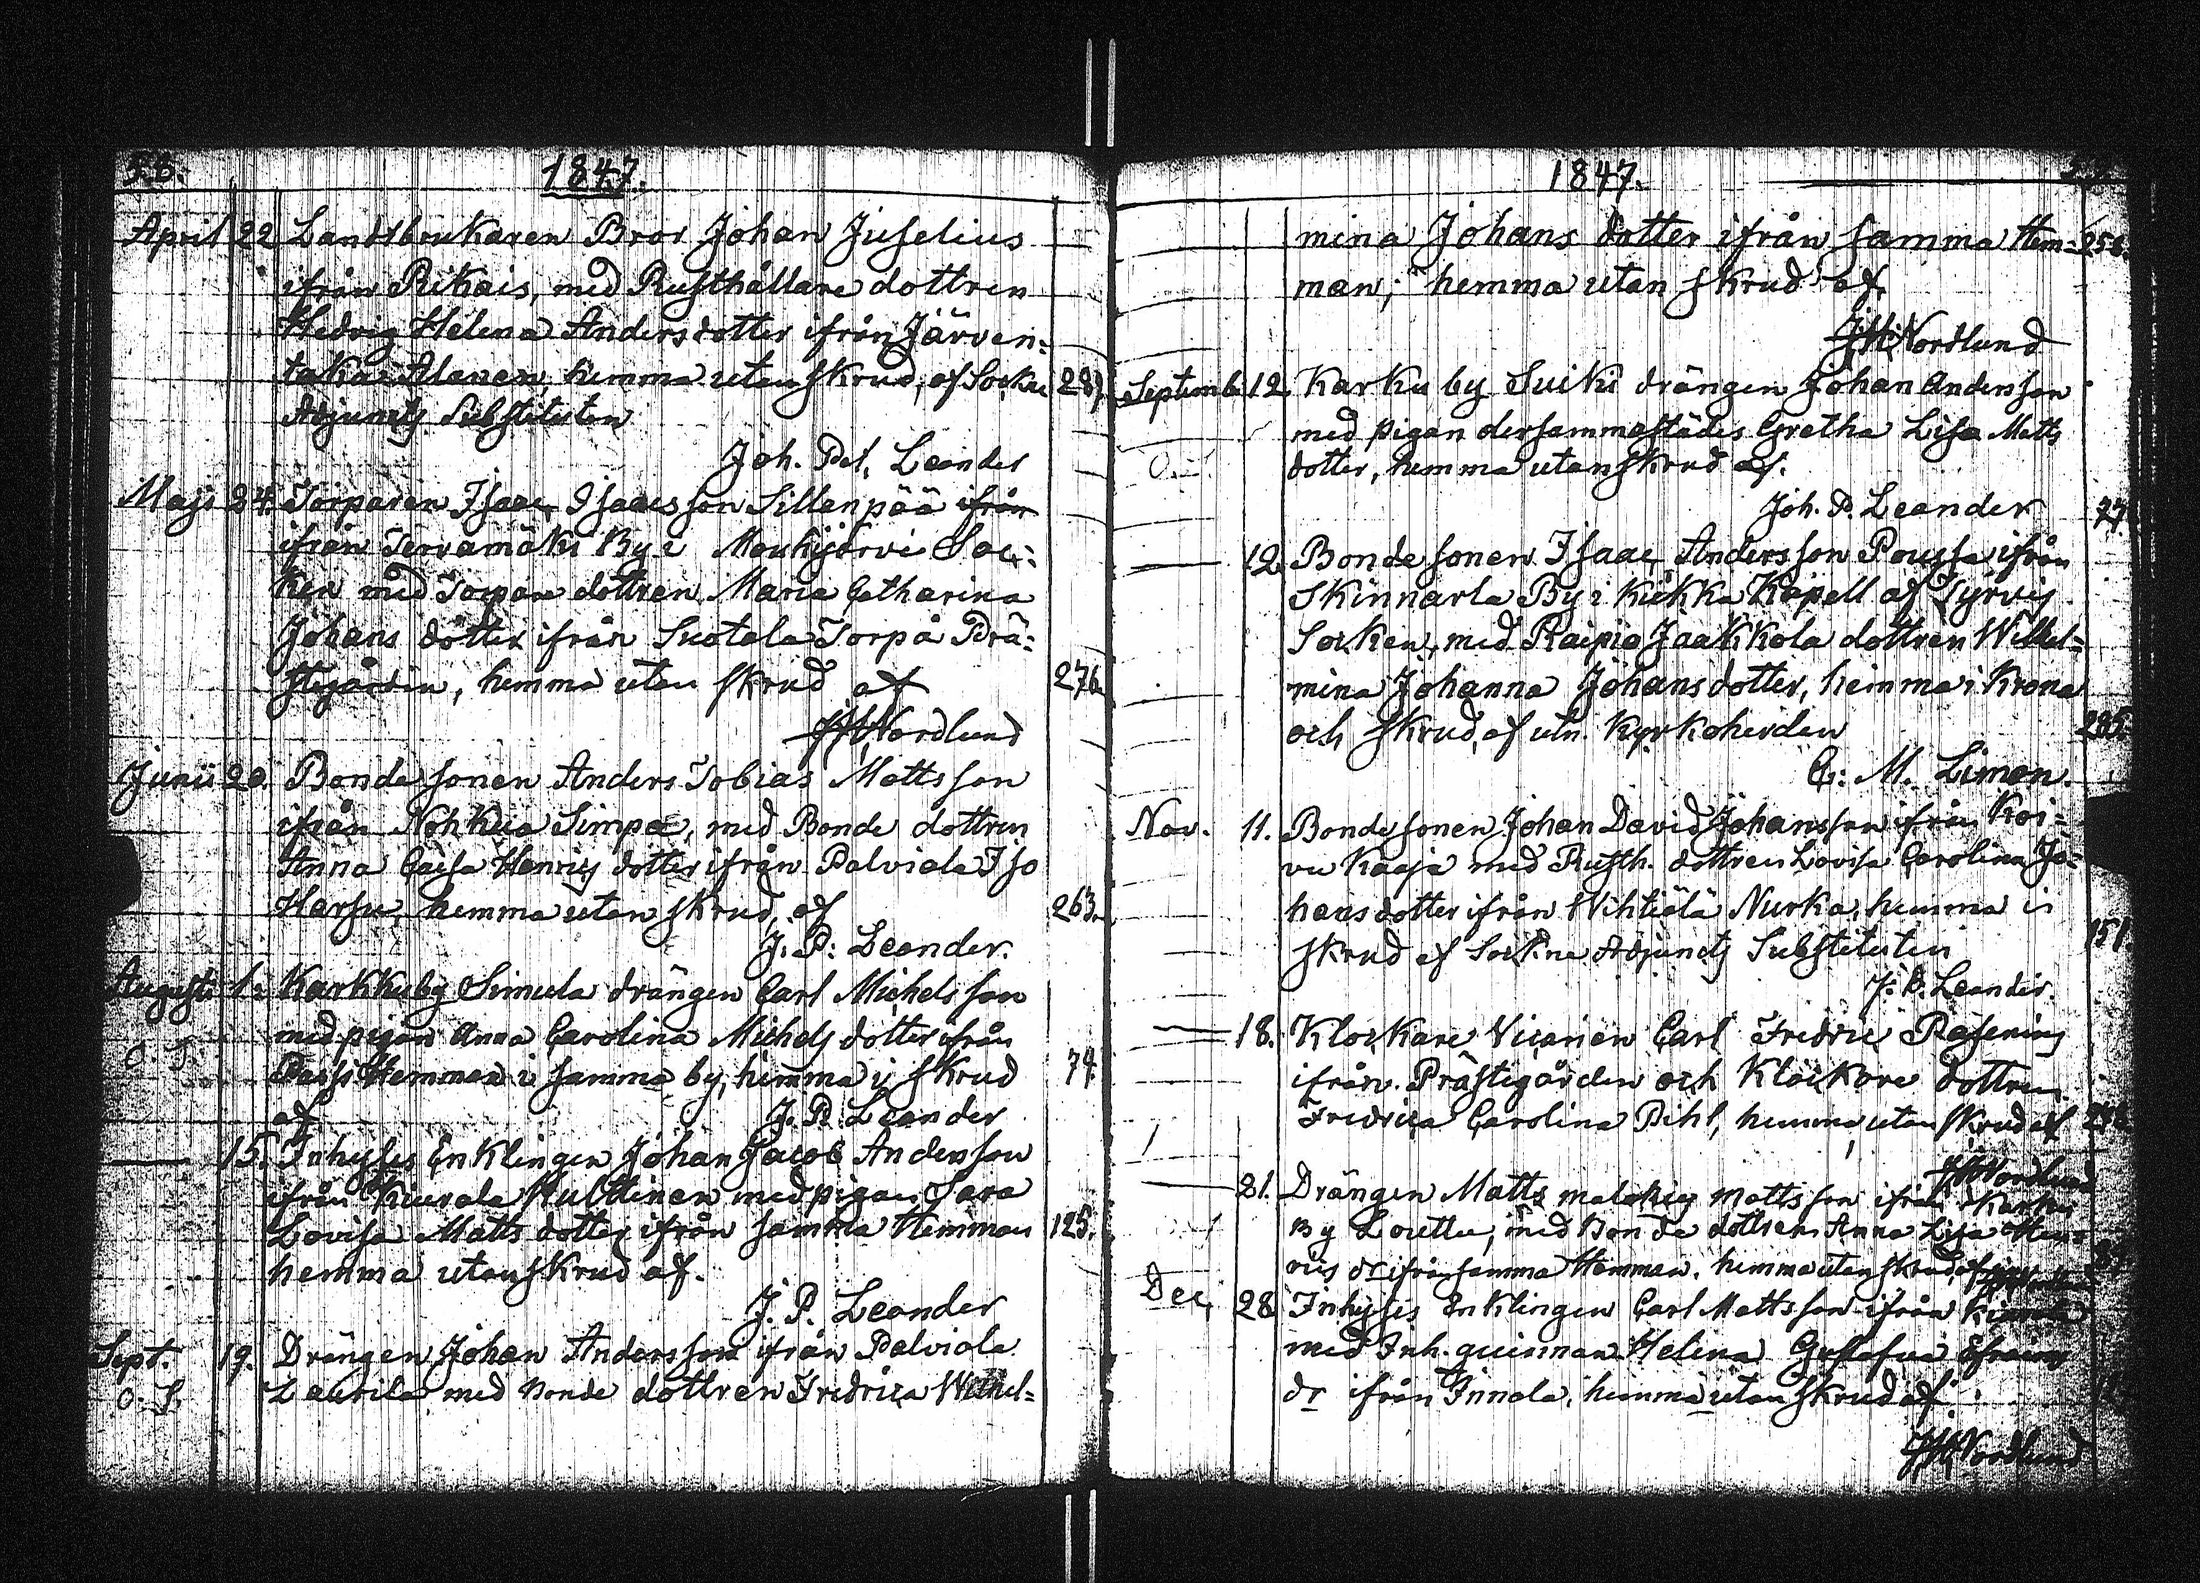 56.
1847.
April 22 Landtbrukaren Bror Johan Juselius
ifrån Rikais, med Rusthållare dottren
Hedvig Helena Andersdotter ifrån Järven:
taka Alanen, hemma utan skrud, af Sockne 287.
Adjuncts Substituten
Joh. Pet. Leander
Maji 24. Torparen Isaac Isaacsson Sillanpää ifrån
ifrån Tervamäki By i Mouhijärvi Soc:
ken med Torpare dottren Maria Catharina
Johans dotter ifrån Suotala Torp å Prä:
stegården, hemma utan skrud af 276.
JHNordlund
Junii 20. Bonde sonen Anders Tobias Mattsson
ifrån Nohkua Simpa, med Bonde dottren
Anna Caisa Henrics dotter ifrån Palviala Iso
Harsu, hemma utan skrud, af 263.
J. P. Leander.
Augusti 1. Karkkuby Simula drängen Carl Michelsson
med pigan Anna Carolina Michels dotter ifrån
O. S. Passi Hemman i samma by, hemma i skrud 74.
af J. P. Leander
15. Inhyses Enklingen Johan Jacob Andersson
ifrån Kiurala Hulttinen med pigan Sara
Lovisa Matts dotter ifrån samma Hemman 125.
hemma utan skrud af.
J. P. Leander
Sept. 19. Drängen Johan Andersson ifrån Palviala
O. S. Laurila med Bonde dottren Fredrica Wilhel=
1847.
mina Johans dotter ifrån samma Hem= 258.
man, hemma utan skrud af
JHNordlund
Septemb. 12. Karku by Suiki drängen Johan Andersson
med pigan dersammastädes Gretha Lisa Matts
O. dotter, hemma utan skrud af.
Joh. P. Leander
12. Bonde sonen Isaac Andersson Poussa ifrån
Skinnarla By i Kiikka Kapell af Tyrvis
Socken, med Raipio Jaakkola dottren Wilhel=
mina Johanna Johansdotter, hemma i Krona
och skrud, af utn. Kyrkoherden 285.
C. M. Limon.
Nov. 11. Bonde sonen Johan David Johansson ifrån Koi=
vu Kaaja med Rusth. dottren Lovisa Carolina Jo=
hans dotter ifrån Wihtiälä Nurka, hemma i
skrud af Sockne Adjuncts Substituten 151.
J. P. Leander.
18. Klockare Vicarien Carl Fredric
ifrån Prästegården och Klockare dottren
Fredrica Carolina Pihl, hemma utan skrud af
JHNordlund
21. Drängen Matts Mattsson ifrån Karku
By med Bonde dottren Anna Lisa Hen=
rics dr ifrån samma Hemman, hemma utan skrud af
Dec. 28. Inhyses Enklingen Carl Mattsson ifrån
med Inh. quinnan Helena Gustafva
dr ifrån Innala, hemma utan skrud af
JHNordlund